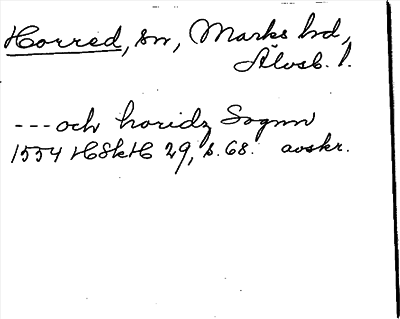 Horred, sn, Marks hd,
Älvsb. l.
--- och horidz Sognn
1554 HSkH 29, s. 68. avskr.